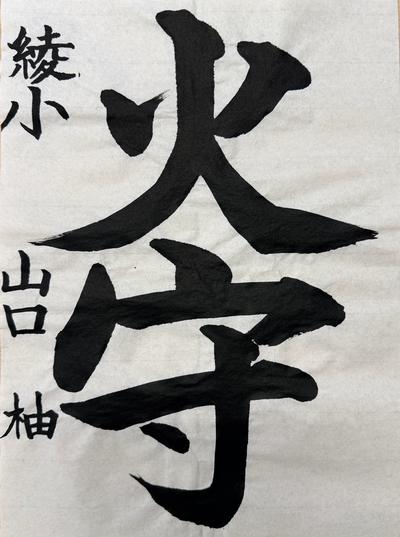 火守
綾小
山口
柚